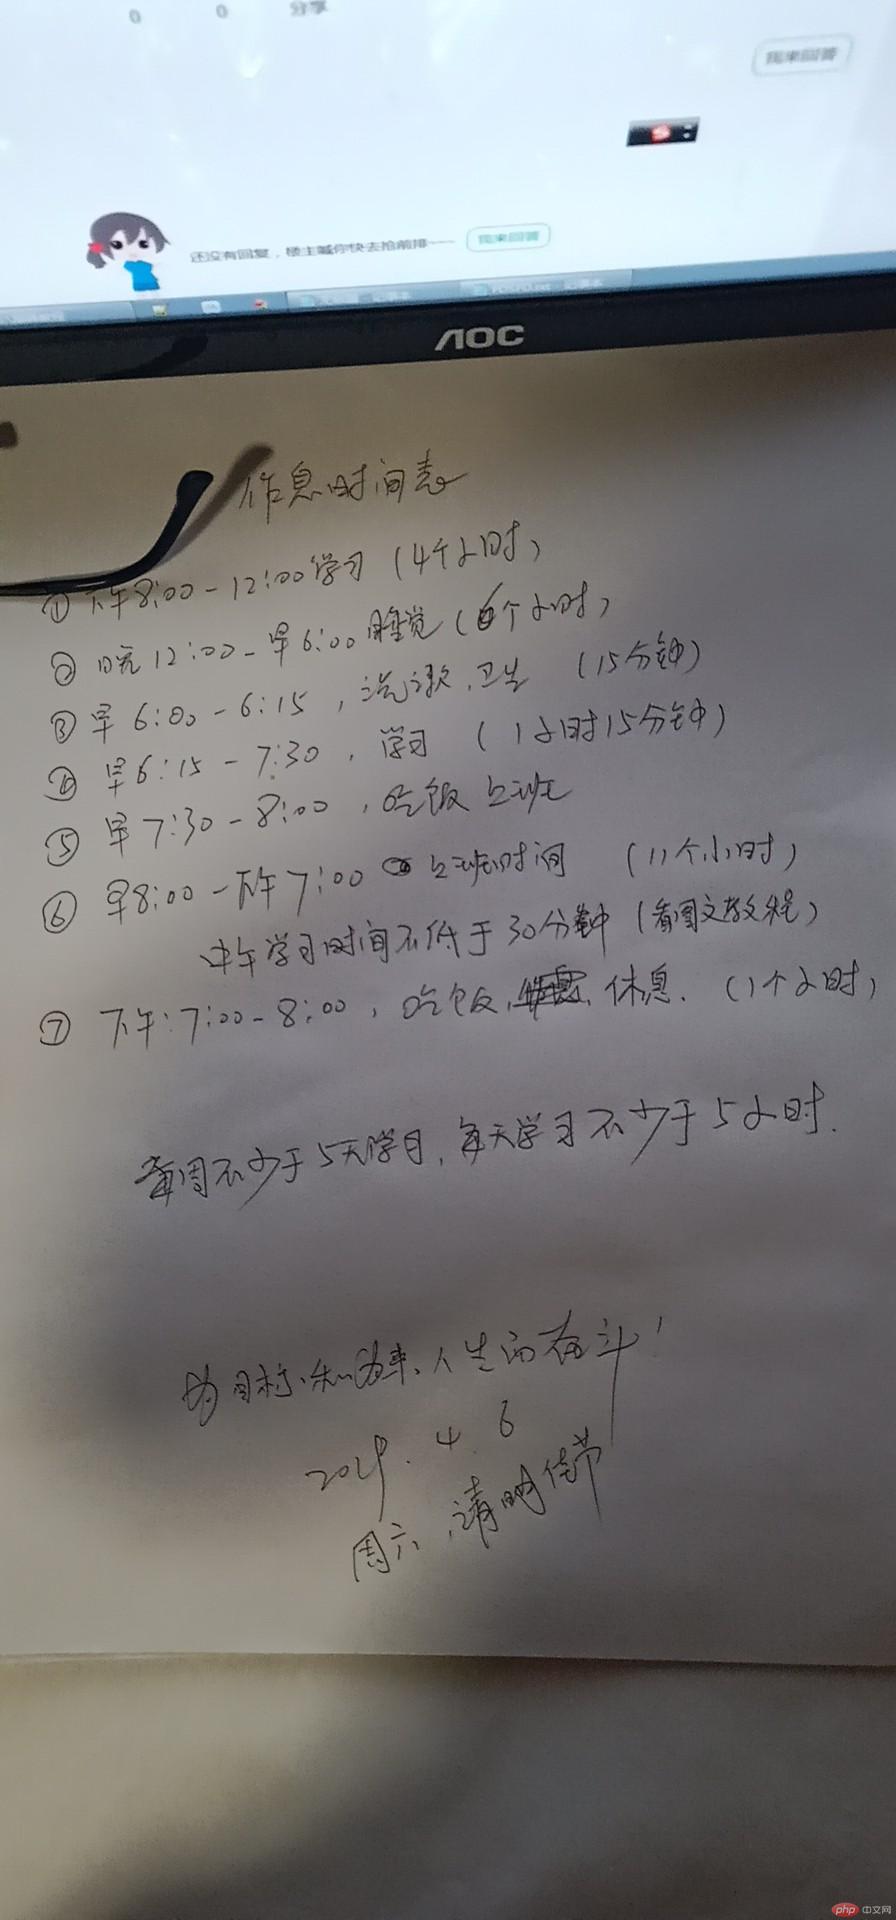 0 0 分享
我来回答
还没有回复，楼主喊你快去抢前排~~~ 我来回答
AOC
作息时间表
① 下午8:00-12:00学习（4个小时）
② 晚12:00-早6:00睡觉（6个小时）
③ 早6:00-6:15，洗漱、卫生（15分钟）
④ 早6:15-7:30，学习（1小时15分钟）
⑤ 早7:30-8:00，吃饭上班
⑥ 早8:00-下午7:00 上班时间（11个小时）
中午学习时间不低于30分钟（看图文教程）
⑦ 下午:7:00-8:00，吃饭、休息.（1个小时）
每周不少于5天学习，每天学习不少于5小时.
为目标、人生而奋斗！
2019.4.6
周六，清明佳节
php 中文网